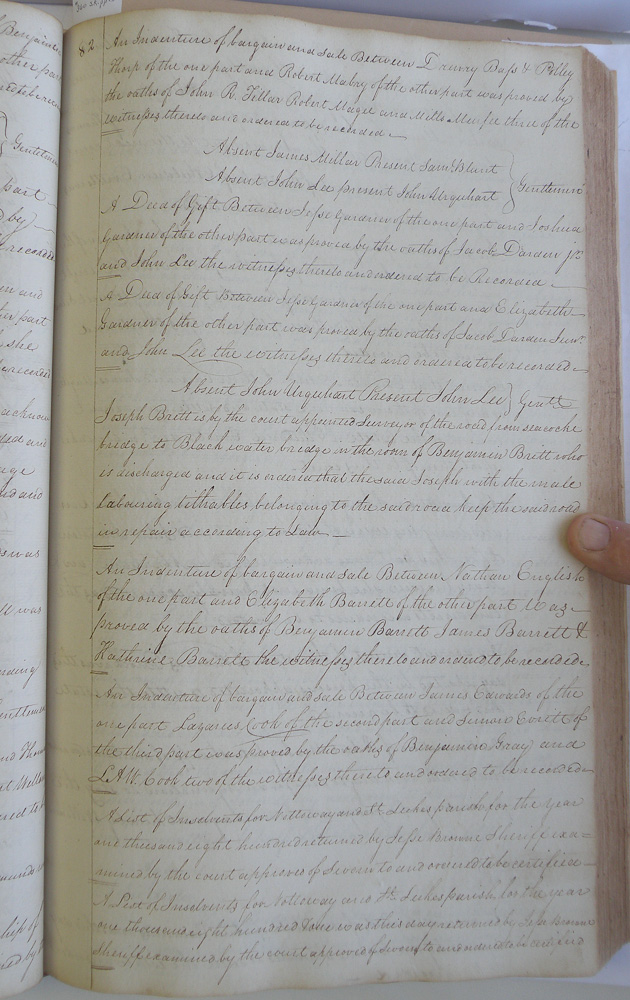 82
An Indenture of bargain and sale Between Drewry Bass & Polley
Thorp of the one part and Robert Mabry of the other part was proved by
the oaths of John R. Fellar Robert Magee and Mills three of the
witnesses thereto and ordered to be recorded
Absent James Millar Present Saml Blunt
Absent John Lee present John Urquhart } Gentlemen
A Deed of Gift Between Jesse Gardner of the one part and Joshua
Gardner of the other part was proved by the oaths of Jacob Darden jr
and John Lee the witnesses thereto and ordered to be Recorded
A Deed of Gift Between Jesse Gardner of the one part and Elizabeth
Gardner of the other part was proved by the oaths of Jacob Darden Junr
and John Lee the witnesses thereto and ordered to be recorded
Absent John Urquhart Present John Lee } Gentn
Joseph Britt is by the court appointed Surveyor of the road from seacocke
bridge to Black water bridge in the room of Benjamin Britt who
is discharged and it is ordered that the said Joseph with the male
Labouring tithables belonging to the said road keep the said road
in repair according to Law
An Indenture of bargain and sale Between Nathan English
of the one part and Elizabeth Barrett of the other part Was
proved by the oaths of Benjamin Barrett James Barrett &
Kathrine Barrett the witnesses thereto and ordered to be recorded
An Indenture of bargain and sale Between James Edwards of the
one part Lazarus Cook of the second part and of
the third part was proved by the oaths of Benjamin Gray and
L. A. W. Cook two of the witnesses thereto and ordered to be recorded
A List of Insolvents for Nottoway and St Lukes parish for the year
one thousand eight hundred returned by Jesse Browne Sheriff exa=
mined by the court approved of sworn to and ordered to be certified
A List of Insolvents for Nottoway and St Lukes parish for the year
one thousand eight hundred & one was this day returned by Jesse Browne
Sheriff examined by the court approved of sworn to and ordered to be certified